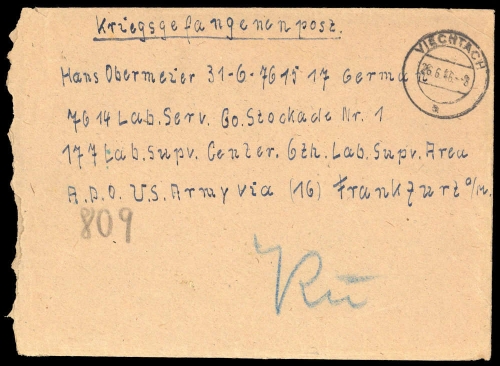 Kriegsgefangenenpost.
VIECHTACH
Hans Obermeier 31-G-7615 17 Germa
7614 Lab. Serv. Co. Stockade Nr. 1
177 Lab. Supv. Center. 6th. Lab. Supv. Area
A.P.O. U.S. Army via (16) Frankfurt a/M.
809